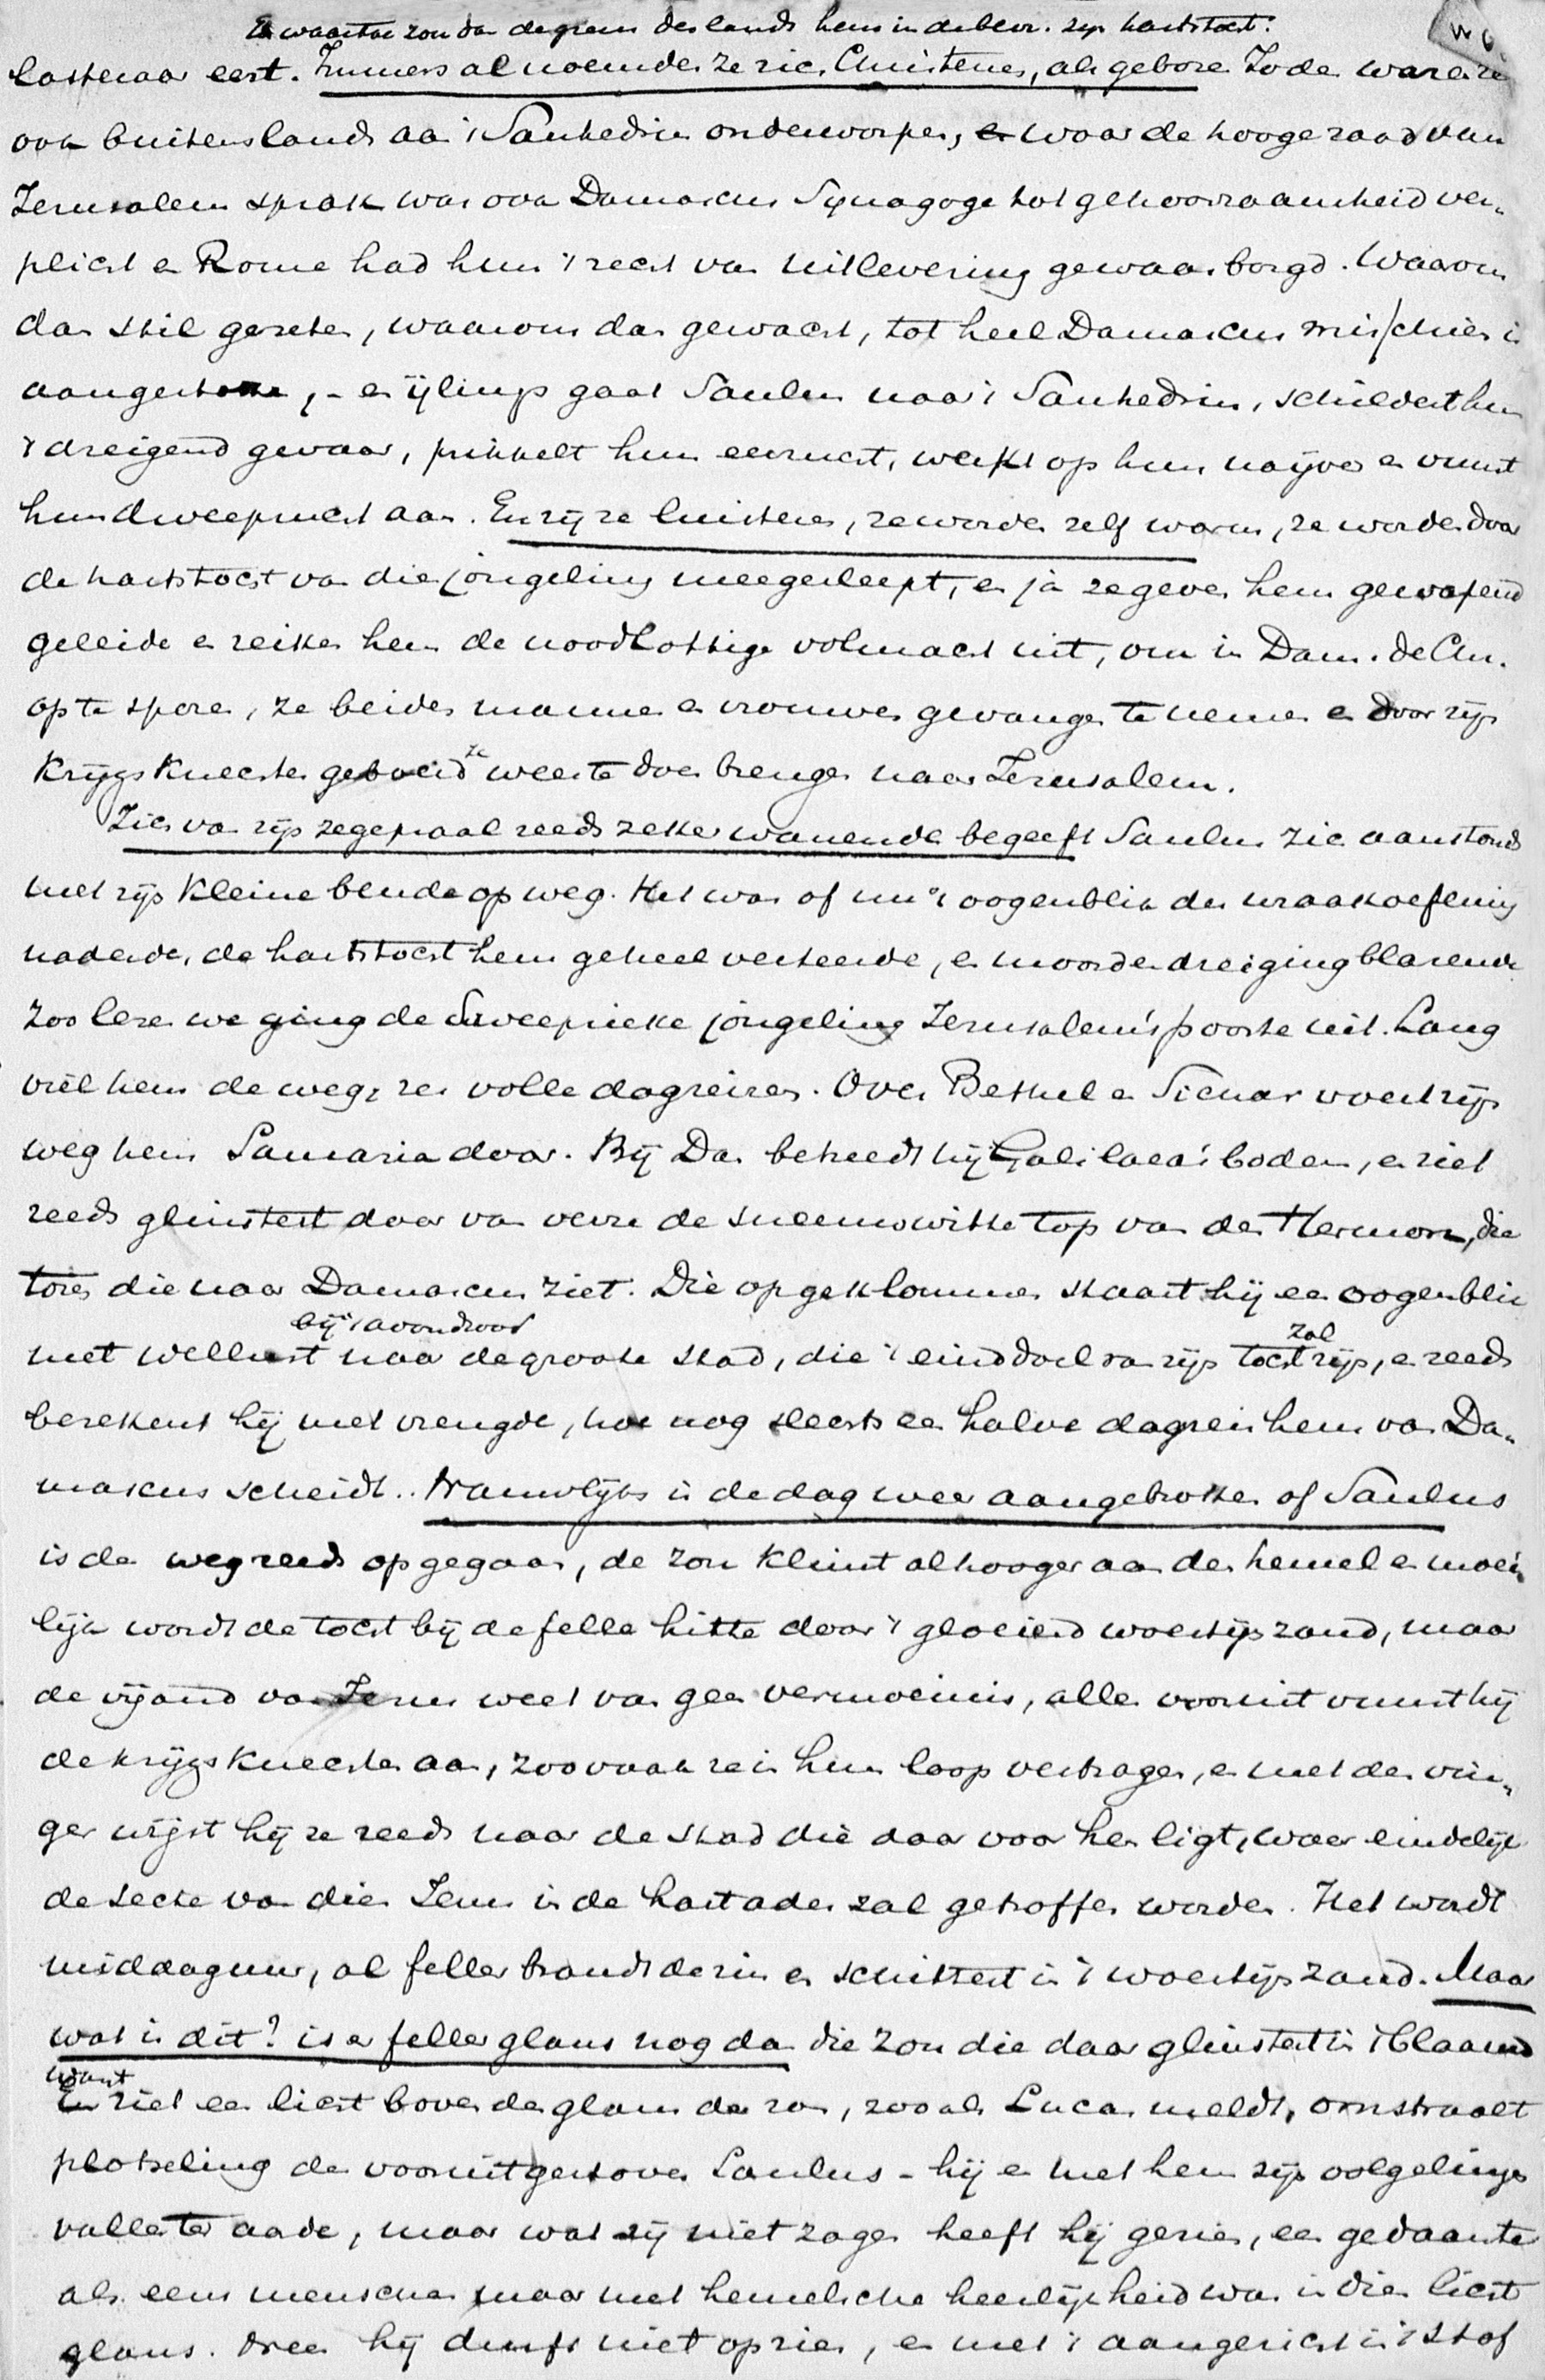 En waartoe zou dan de grens des lands hem in de bevr. zijn hartstocht.
lasteraar eert. Immers al noemden ze zic. Christenen, als gebore Joden waren ze
ook buitenslands aan 't Sanhedrin onderworpen, en waar de hooge raad van
Jerusalem sprak was ook Damascus Synagoge tot gehoorzaamheid ver-
plicht en Rome had hun 't recht van uitlevering gewaarborgd. Waarom
dan stil gezeten, waarom dan gewacht, tot heel Damascus misschien is
aangestoken, - en ijlings gaat Saulus naar 't Sanhedrin, schildert hun
't dreigend gevaar, prikkelt hun eerzucht, werkt op hun naijver en vuurt
hun dweepzucht aan. En zij ze luisteren, ze worden zelf warm, ze worden door
de hartstocht van die jongeling meegesleept, en ja ze geven hem gewapend
geleide en reiken hem de noodlottige volmacht uit, om in Dam. de Chr.
op te sporen, ze beiden mannen en vrouwen gevangen te nemen en door zijn
Krijgsknechten geboeid ze weer te doen brengen naar Jerusalem.
Zich van zijn zegepraal reeds zeker wanende begeeft Saulus zic aanstonds
met zijn kleine bende op weg. Het was of nu 't oogenblik der wraakoefening
naderde, de hartstocht hem geheel verteerde, en moord en dreiging blazende
zoo lezen we ging de dweepzieke jongeling Jerusalem's poorten uit. Lang
viel hem de weg, zes volle dagreizen. Over Bethel en Sichar voert zijn
weg hem Samaria door. Bij Dan betreedt hij Galilaea's bodem, en ziet
reeds glinstert daar van verre de sneeuwwitte top van den Hermon, die
toren die naar Damascus ziet. Die opgeklommen staart hij een oogenblik
bij 't avondrood
met wellust naar de groote stad, die 't einddoel van zijn tocht zal zijn, en reeds
berekent hij met vreugde, hoe nog slechts een halve dagreis hem van Da-
mascus scheidt. Nauwlijks is de dag weer aangebroken of Saulus
is den weg reeds opgegaan, de zon klimt al hooger aan den hemel en moei-
lijk wordt de tocht bij de felle hitte door 't gloeiend woestijnzand, maar
de vijand van Jezus weet van geen vermoeinis, allen vooruit vuurt hij
de krijgsknechten aan, zoo vaak ze in hun loop vertragen, en met den vin-
ger wijst hij ze reeds naar de stad die daar voor hen ligt, waar eindelijk
de secte van dien Jezus in de hartader zal getroffen worden. Het wordt
middaguur, al feller brandt de zon en schittert in 't woestijnzand. Maar
wat is dit? is er feller glans nog dan die zon die daar glinstert in 't blaauw
want
En ziet een licht boven den glans der zon, zooals Lucas meldt, omstraalt
plotseling den vooruitgestoven Saulus - hij en met hem zijn volgelingen
vallen ter aarde, maar wat zij niet zagen heeft hij gezien, een gedaante
als eens menschen maar met hemelsche heerlijkheid was in dien licht
glans. Neen hij durft niet opzien, en met 't aangezicht in 't stof